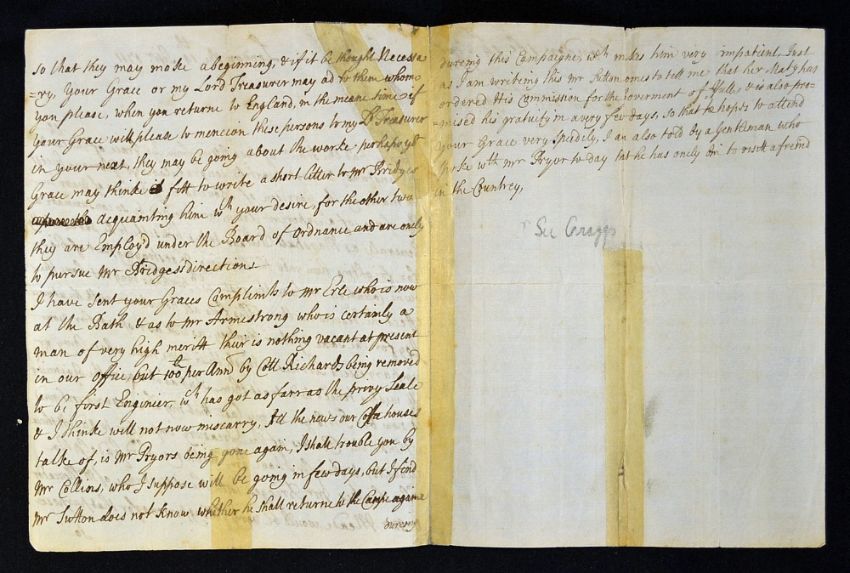 so that they may make a beginning, & if it be thought Necessa
=ry, Your Grace or my Lord Treasurer may ad to them whome
you please, when you returne to England, in the meane time if
Your Grace will please to mencion these persons to my Ld Treasurer
in your next, they may be going about the worke perhaps yr
Grace may thinke it fitt to write a short letter to Mr Bridges
acquainting him wth your desire, for the other two
they are Employd under the Board of Ordnance and are onely
to pursue Mr Bridges directions
I have sent your Graces Complimts to Mr Erle who is now
at the Bath & as to Mr Armstrong who is certainly a
man of very high meritt thair is nothing vacant at present
in our office, but 100ll per Ann by Coll Richards being removed
to be first Enginier, wch has got as far as the privy Seale
& I thinke will not now miscarry, All the news our Coffe houses
talke of, is Mr Pryors being gone again, I shall trouble you by
Mr Collins, who I suppose will be going in few days, but I find
Mr Sutton does not know whether he shall returne to the Campe againe
dureing
dureing this Campaigne, wch makes him very impatient Just
as I am writeing this Mr Sutton comes to tell me that her Maty has
ordered His Commission for the Goverment of Hull, & is also pro=
=mised his gratuity in a very few days, so that he hopes to attend
Your Grace very speedily, I am also told by a Gentleman who
spoke wth Mr Pryor to day that he has onely bin to visett a friend
in the Countrey,
Sec Craggs